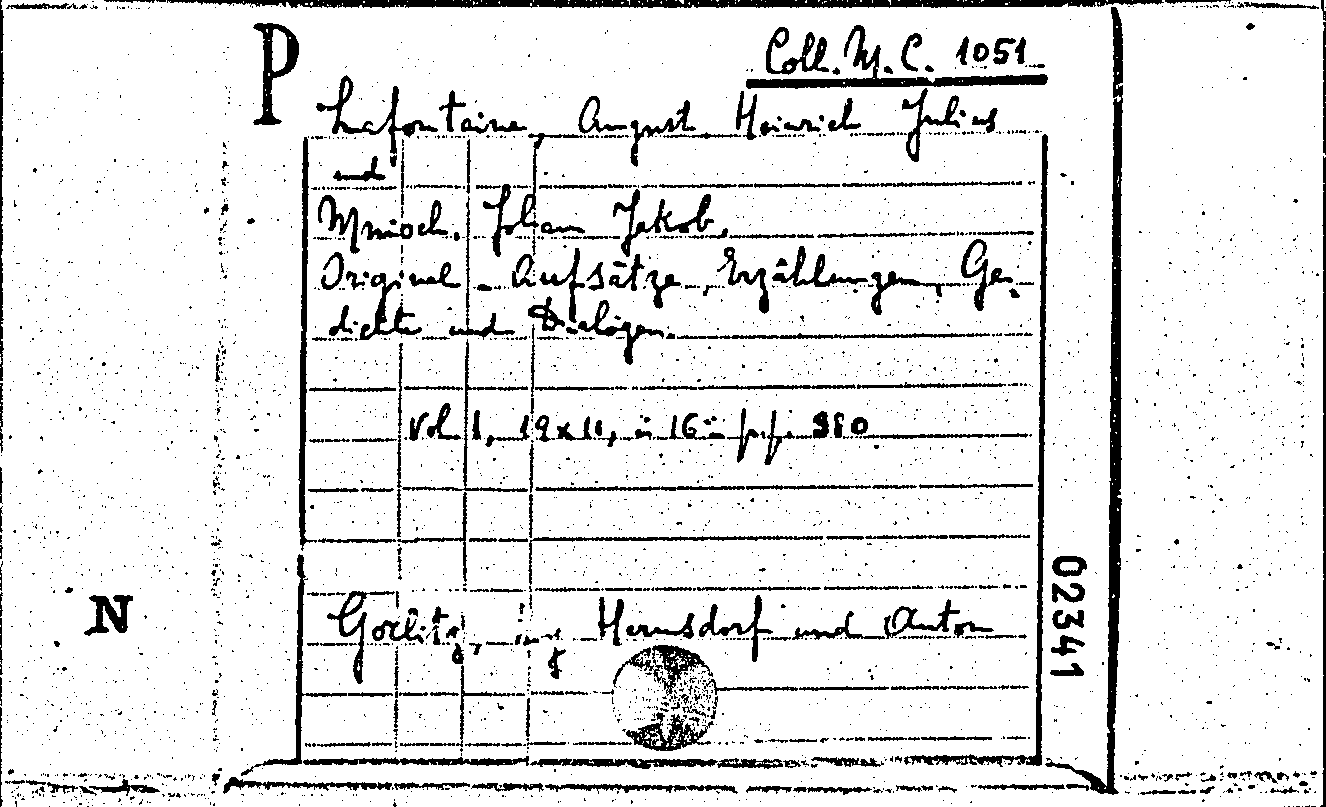 P
Coll. M. C. 1051
Lafontaine, August Heinrich Julius
und
Mnioch, Johann Jakob,
Original - Aufsätze, Erzählungen, Ge-
dichte und Dialogen.
Vol. 1, 19x11, in 16° pp.
N
Görlitz, Hermsdorf und Anton
02341